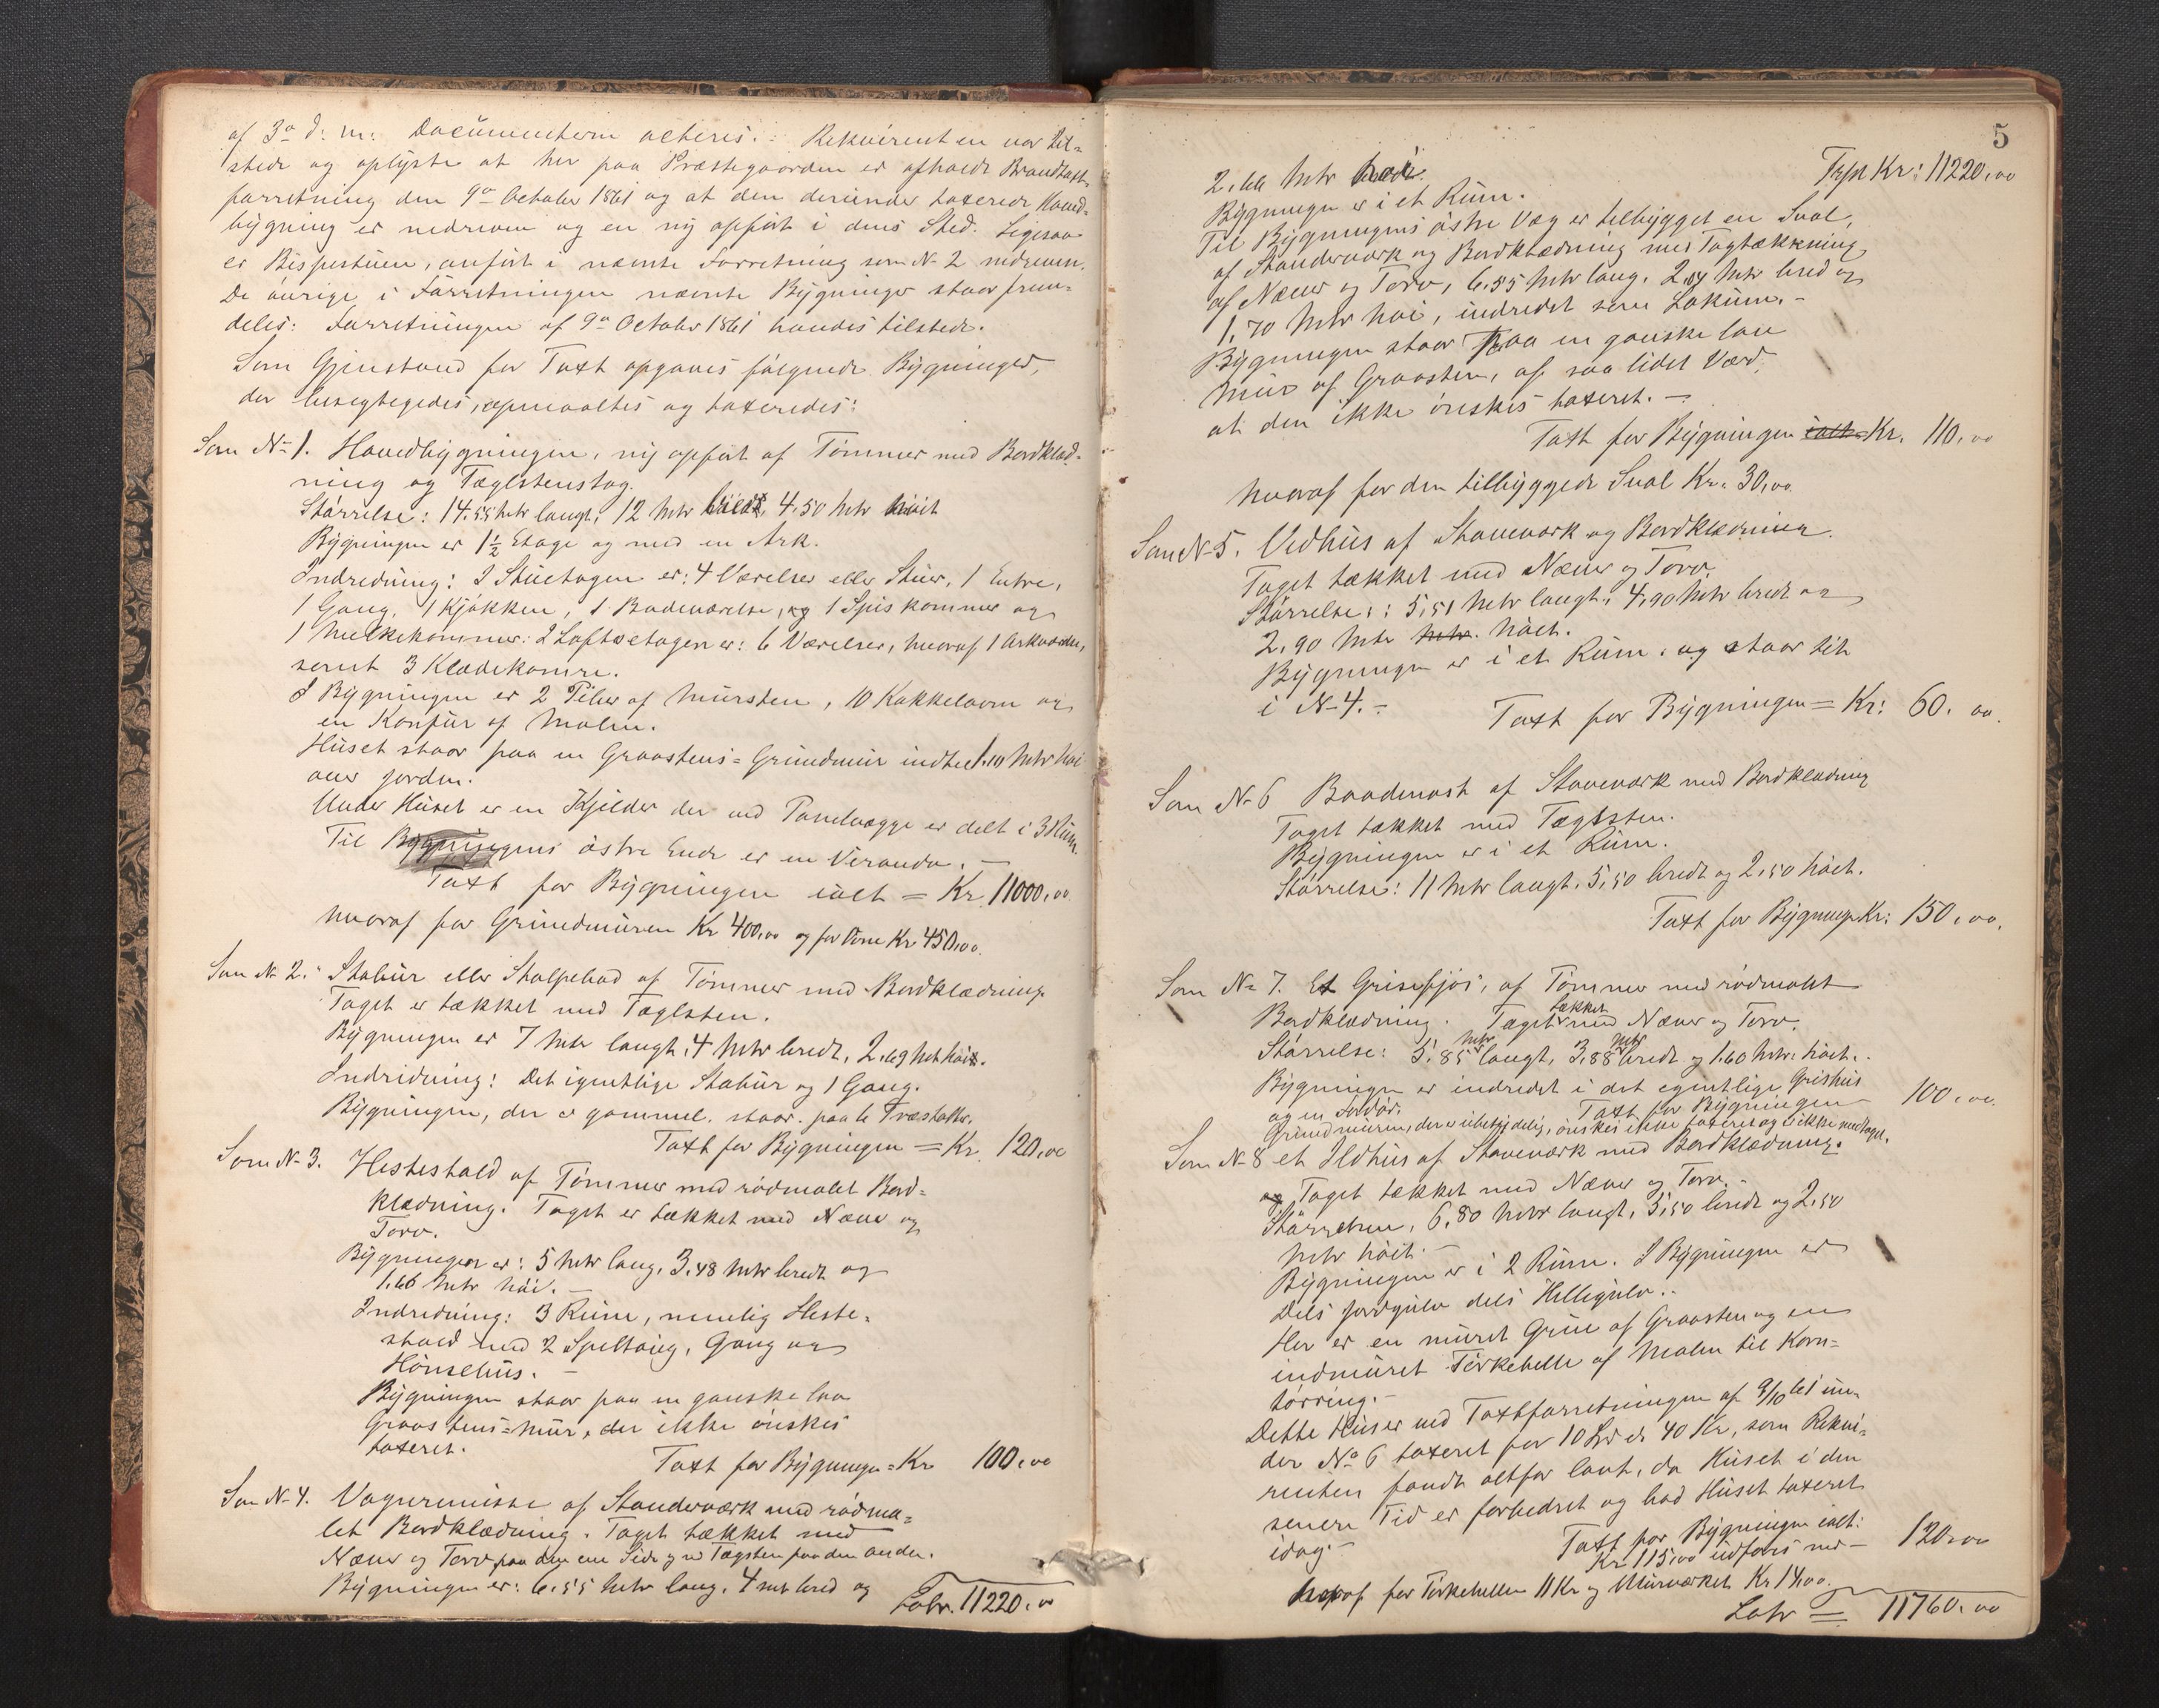 af 3die d: m: Documentern acteres.: Rekvirenten var til-
stede og oplyste at her paa Præstegaarden er afholdt Brandtaxt-
forretning den 9de October 1861 og at den derunder taxerede Hoved-
bygning er nedreven og en ny opført i dens Sted. Ligesaa
er Bispestuen, anført i nævnte Forretning som No 2 nedreven.
De øvrige i Forretningen nævnte Bygninger staar frem-
deles: Forretningen af 9de October 1861 havdes tilstede.
Som Gjenstand for Taxt opgaves følgende Bygninger,
der besigtigedes, opmaaltes og taxeredes:
Som No 1. Hovedbygningen, ny opført af Tømmer med Bordklæd-
ning og Taglstenstag.
Størrelse: 14,55 Mtr langt, 12 Mtr bredt, 4,50 Mtr høit
Bygningen er 1½ Etage og med en Ark.
Indredning: I Stuetagen er: 4 Værelser eller Stuer, 1 Entre,
1 Gang, 1 Kjøkken, 1 Badeværelse, og 1 Spiskammer og
1 Melkekammer: I Loftsetagen er: 6 Værelser, hvoraf 1 Arkværelse,
samt 3 Klædekamre.
I Bygningen er 2 Piber af Mursten, 10 Kakkelovne og
en Komfur af Malm.
Huset staar paa en Graastens-Grundmur indtil 1.10 Mtr høi
over Jorden.
Under Huset er en Kjelder der ved Panelvægge er delt i 3 Rum.
Til Bygningens østre Ende er en Veranda. —
Taxt for Bygningen ialt = Kr. 11000,00
hvoraf for Grundmuren Kr 400,00 og for Ovne Kr 450,00.
Som No 2. Stabur eller Stolpebod af Tømmer med Bordklædning.
Taget er tækket med Taglsten.
Bygningen er 7 Mtr langt, 4 Mtr bredt, 2,69 Mtr høit.
Indredning: Det igentlige Stabur og 1 Gang.
Bygningen, der er gammel, staar paa 6 Træstolper.
Taxt for Bygningen = Kr. 120,00
Som No 3. Hestestald af Tømmer med rødmalet Bord-
klædning. Taget er tækket med Næver og
Torv.
Bygningen er: 5 Mtr lang, 3,48 Mtr bredt og
1,66 Mtr høi. —
Indredning: 3 Rum, nemlig Heste-
stald med 2 Spiltoug, Gang og
Hønsehus. —
Bygningen staar paa en ganske lav
Graastens-Mur, der ikke ønskes
taxeret.
Taxt for Bygningen = Kr 100,00
Som No 4. Vognremisse af Standerværk med rødma-
let Bordklædning. Taget tækket med
Næver og Torv paa den ene Side og med Taglsten paa den anden.
Bygningen er: 6,55 Mtr lang, 4 Mtr bred og
Latr. 11220,00
5
Trpt Kr: 11220,00
2,66 Mtr høi.
Bygningen er i et Rum.
Til Bygningens østre Væg er tilbygget en Sval,
af Standerværk og Bordklædning med Tagtækkning
af Næver og Torv, 6,55 Mtr lang, 2,04 Mtr bred og
1,70 Mtr høi, indredet som Lokum. —
Bygningen staar paa en ganske lav
Mur af Graasten, af saa lidet Værd,
at den ikke ønskes taxeret. —
Taxt for Bygningen ialt Kr. 110,00
hvoraf for den tilbyggede Sval Kr. 30,00
Som No 5. Vedhus af Stavværk og Bordklædning.
Taget tækket med Næver og Torv.
Størrelse: 5,51 Mtr langt, 4,90 Mtr bredt og
2,90 Mtr Mtr. høit.
Bygningen er i et Rum, og staar tit
i No 4. —
Taxt for Bygningen = Kr: 60,00.
Som No 6 Baadenøst af Stavværk med Bordklædning
Taget tækket med Taglsten.
Bygningen er i et Rum.
Størrelse: 11 Mtr langt, 5,50 bredt og 2,50 høit.
Taxt for Bygningen Kr: 150,00.
Som No 7. Et Grisefjøs, af Tømmer med rødmalet
Bordklædning. Taget tækket med Næver og Torv.
Størrelse: 5,85 Mtr langt, 3,88 Mtr bredt og 1,60 Mtr: høit.
Bygningen er indredet i det egentlige Grishus
og en Fordør. Taxt for Bygningen 100,00.
Grundmuren, der er ubetydelig, ønskes ikke taxeret og er ikke medtaget.
Som No 8 et Ildhus af Stavværk med Bordklædning.
og Taget tækket med Næver og Torv. —
Størrelsen, 6,80 Mtr langt, 5,50 bredt og 2,50
Mtr høit. —
Bygningen er i 2 Rum. I Bygningen er
Dels Jordgulv dels Hellegulv. —
Her er en muret Grue af Graasten og en
indmuret Tørkehelle af Malm til Korn-
tørring. —
Dette Hus er ved Taxtforretningen af 9/10 61 un-
der No 6 taxeret for 10 Spd er 40 Kr, som Rekvi-
renten fandt altfor lavt, da Huset i den
senere Tid er forbedret og bad Huset taxeret
idag. —
Taxt for Bygningen ialt:
Kr 115,00 udføres med — 120,00
hvoraf for Tørkehellen 11 Kr og Murværket Kr 14,00.
Latr = 11760,00